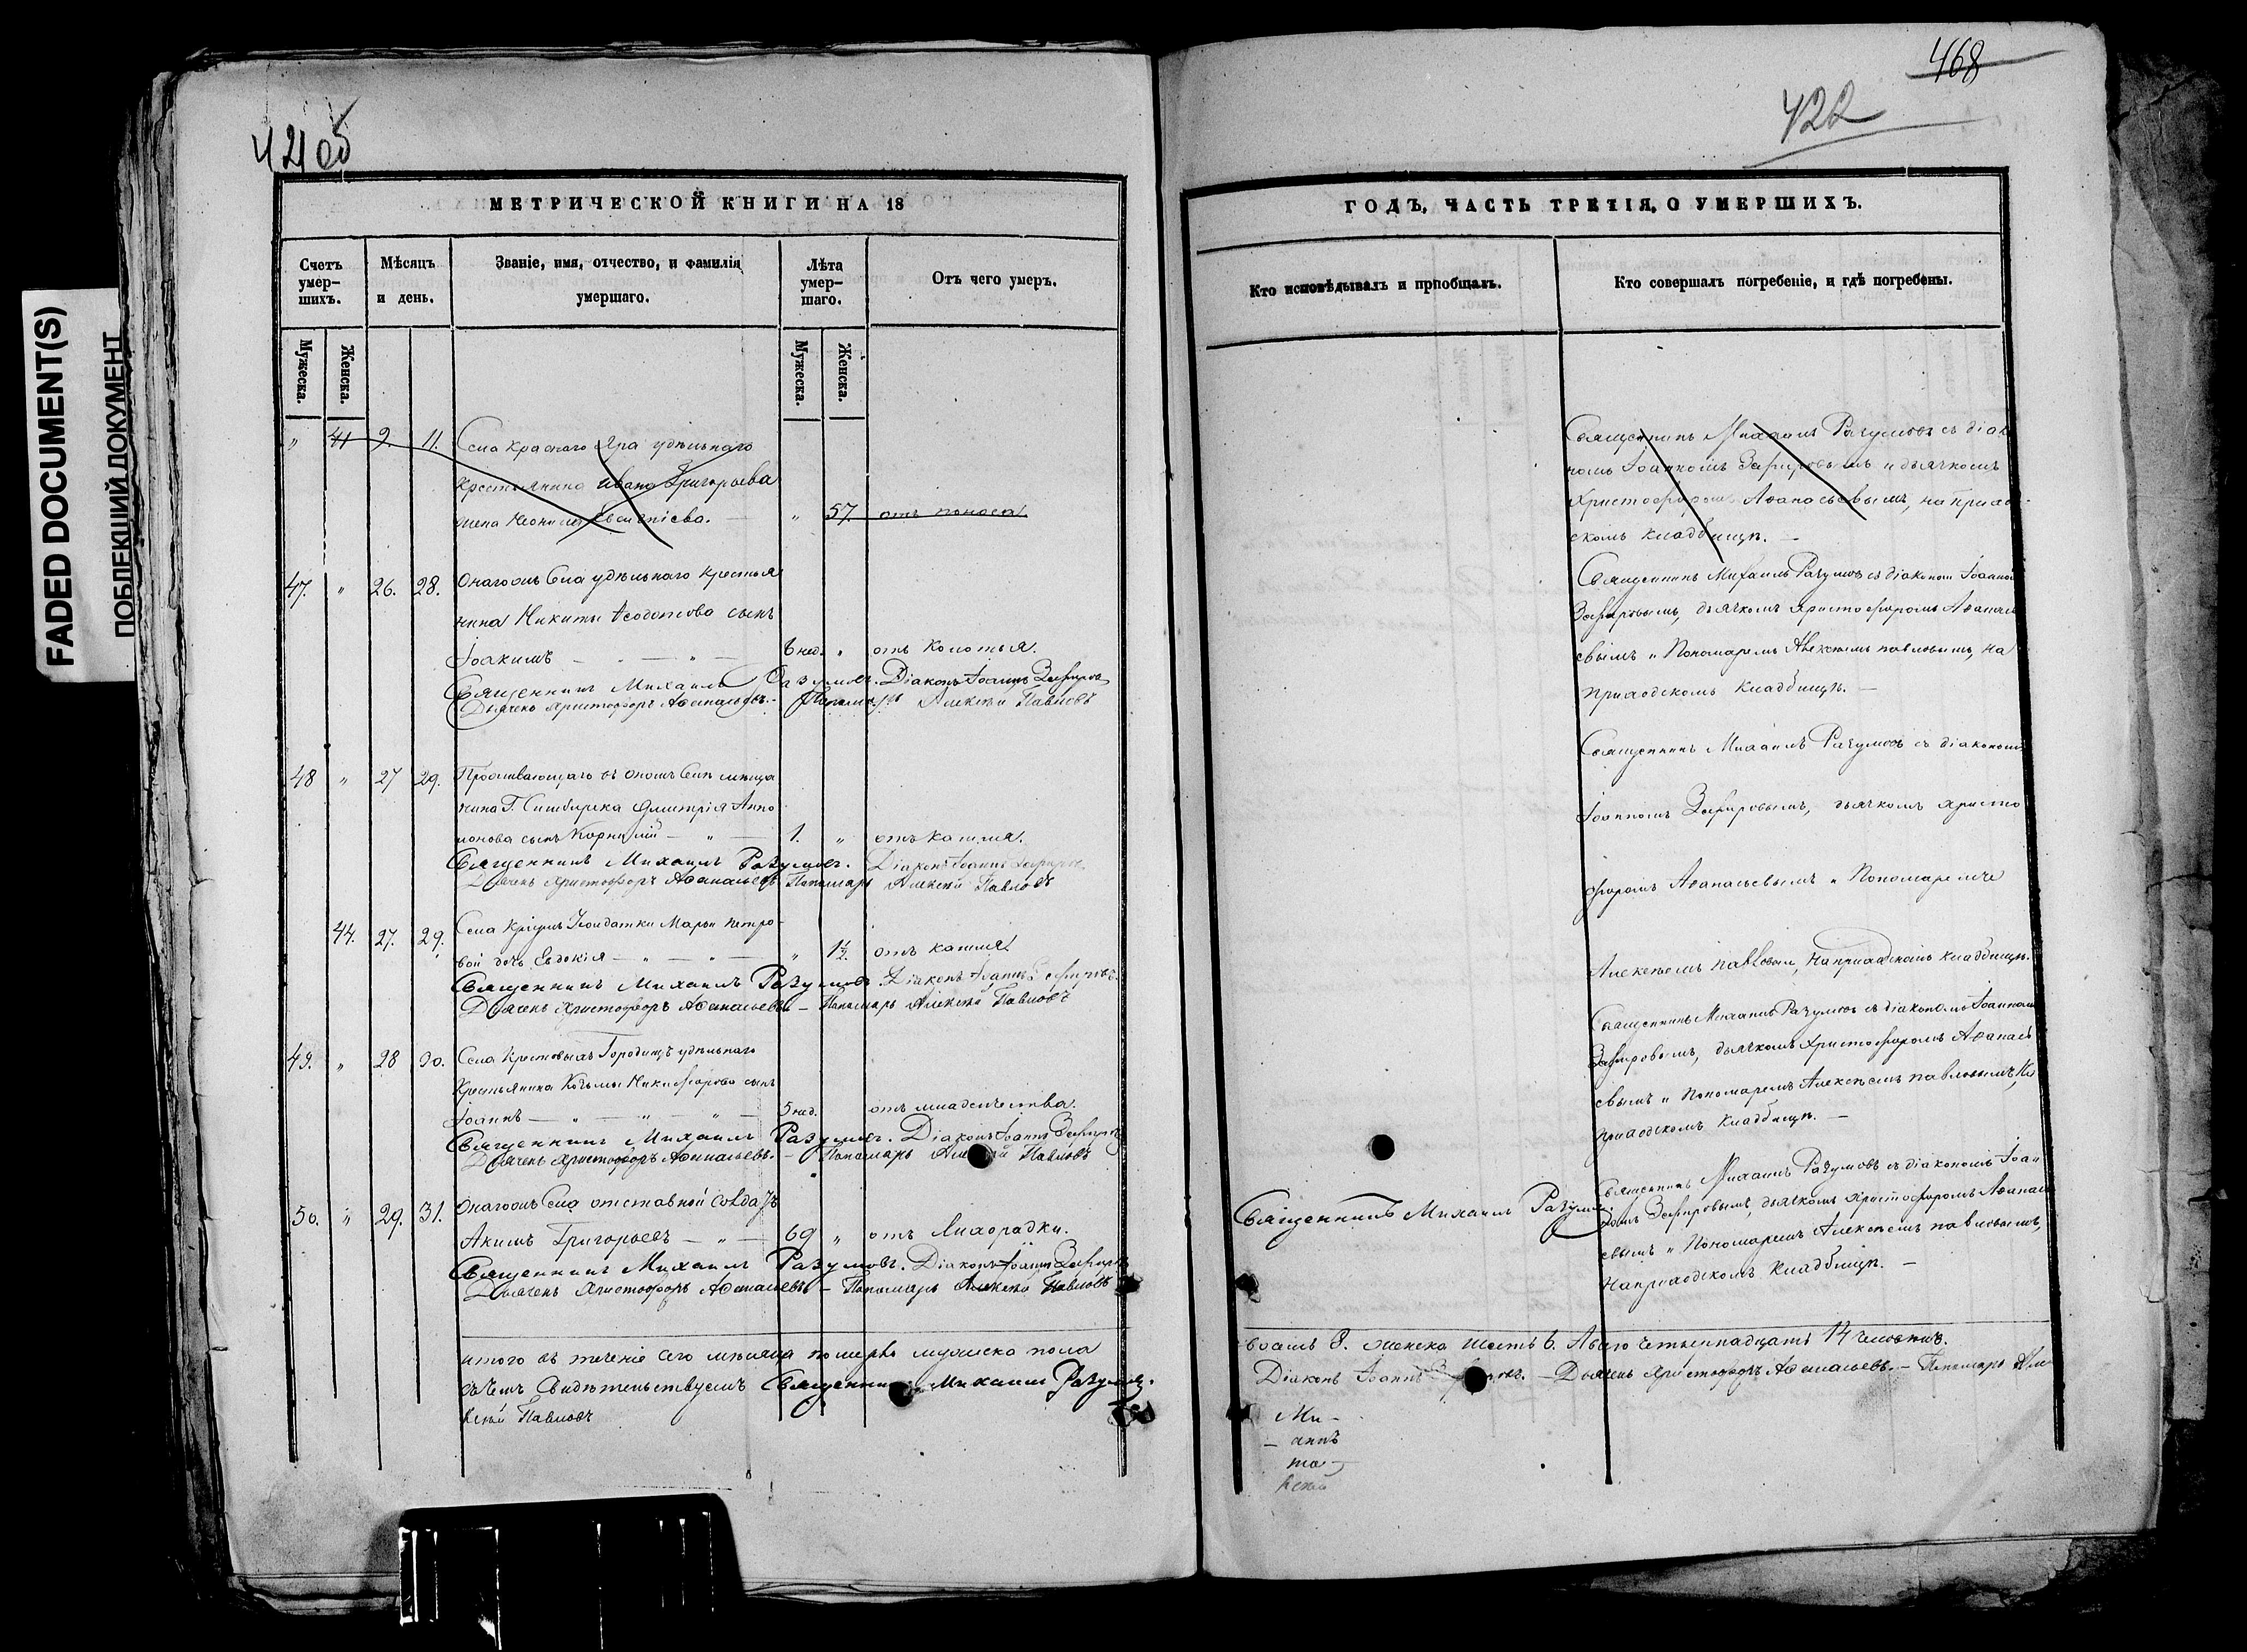 FADED DOCUMENT(S)
ПОБЛЕКШИЙ ДОКУМЕНТ
421 об
МЕТРИЧЕСКОЙ КНИГИ НА 18
Счетъ умер-шихъ.
Мѣсяцъ и день.
Званіе, имя, отчество, и фамилія умершаго.
Лѣта умер-шаго.
Отъ чего умеръ.
Мужеска.
Женска.
Мужеска.
Женска.
„ 41 9. 11. Села Краснаго Яра удѣльнаго
крестьянина Ивана Григорьева
жена Неонила „ 57. отъ поноса.
47. „ 26. 28. Онагожъ Села удѣльнаго крестья
нина Никиты Ѳеодотова сынъ
Іоакимъ — „ — 6 нед. „ отъ колотья.
Священникъ Михаилъ Разумовъ. Діаконъ Іоаннъ Зефировъ
Дьячекъ Христофоръ Аѳанасьевъ. — Пономарь Алексѣй Павловъ
48 „ 27 29. Проживающаго въ ономъ Селѣ мѣща
нина Г. Симбирска Дмитрія
сынъ Корнилій — „ — 1. „ отъ кашля.
Священникъ Михаилъ Разумовъ. Діаконъ Іоаннъ Зефировъ
Дьячекъ Христофоръ Аѳанасьевъ Пономарь Алексѣй Павловъ
44. 27. 29. Села солдатки Марьи Петро-
вой дочь Евдокія — „ — „ — „ 1½. отъ кашля.
Священникъ Михаилъ Разумовъ. Діаконъ Іоаннъ Зефировъ.
Дьячекъ Христофоръ Аѳанасьевъ — Пономарь Алексѣй Павловъ
49. „ 28 30. Села Крестовыхъ Городищъ удѣльнаго
Крестьянина Козьмы Никифорова сынъ
Іоаннъ — „ — „ — „ — 5 нед. отъ младенчества.
Священникъ Михаилъ Разумовъ. Діаконъ Іоаннъ Зефировъ
Дьячекъ Христофоръ Аѳанасьевъ. — Пономарь Алексѣй Павловъ
50. „ 29. 31. Онагожъ Села отставной солдатъ
Акимъ Григорьевъ — „ — 69 „ отъ лихорадки.
Священникъ Михаилъ Разумовъ. Діаконъ Іоаннъ Зефировъ
Дьячекъ Христофоръ Аѳанасьевъ — Пономарь Алексѣй Павловъ
итого въ теченіе сего мѣсяца померло мужеска пола
въ чемъ Свидѣтельствуемъ Священникъ Михаилъ Разумовъ.
ксѣй Павловъ
468
422
ГОДЪ, ЧАСТЬ ТРЕТІЯ, О УМЕРШИХЪ.
Кто исповѣдывалъ и пріобщалъ.
Кто совершалъ погребеніе, и гдѣ погребены.
Священникъ Михаилъ Разумовъ съ діако
номъ Іоанномъ Зефировымъ и дьячкомъ
Христофоромъ Аѳанасьевымъ, на приход-
скомъ кладбищѣ. —
Священникъ Михаилъ Разумовъ съ діакономъ Іоанномъ
Зефировымъ, дьячкомъ Христофоромъ Аѳанасье
вымъ и Пономаремъ Алексѣемъ Павловымъ, на
приходскомъ кладбищѣ. —
Священникъ Михаилъ Разумовъ съ діакономъ
Іоанномъ Зефировымъ, дьячкомъ Христо
форомъ Аѳанасьевымъ и Пономаремъ
Алексѣемъ Павловымъ, на приходскомъ кладбищѣ.
Священникъ Михаилъ Разумовъ съ діакономъ Іоанномъ
Зефировымъ, дьячкомъ Христофоромъ Аѳанасье
вымъ и Пономаремъ Алексѣемъ Павловымъ, на
приходскомъ кладбищѣ. —
Священникъ Михаилъ Разумовъ съ діакономъ Іоан
номъ Зефировымъ, дьячкомъ Христофоромъ Аѳанасье
вымъ и Пономаремъ Алексѣемъ Павловымъ,
на приходскомъ кладбищѣ. —
Священникъ Михаилъ Разумовъ.
восемь 8. женска шесть 6. Обоего четырнадцать 14 человѣкъ.
Діаконъ Іоаннъ Зефировъ. — Дьячекъ Христофоръ Аѳанасьевъ. — Пономарь Але
Ми-
- аннъ
то-
ксѣй